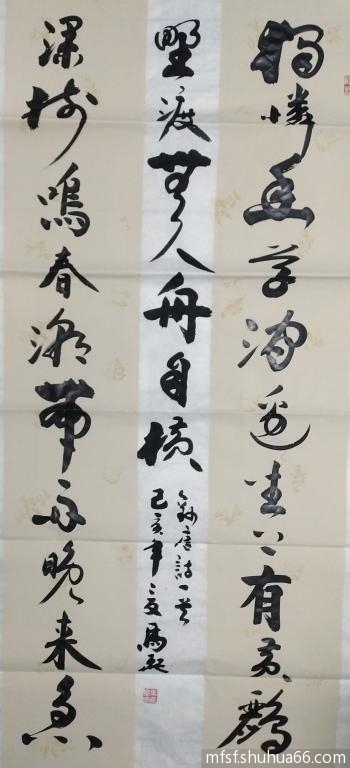 獨憐幽草澗邊生上有黄鸝
深樹鳴春潮帶雨晚来急
野渡無人舟自横
錄唐詩一首
己亥年之夏馬
mfsfshuhua66.com